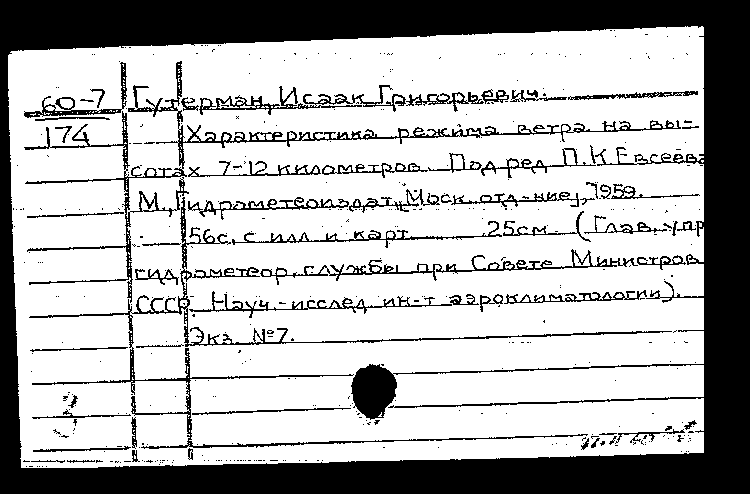 60-7 Гутерман, Исаак Григорьевич.
174 Характеристика режима ветра на вы-
сотах 7-12 километров. Под ред П.К Евсеева
М., Гидрометеоиздат, [Моск. отд-ние], 1959.
56с, с илл и карт 25см (Глав. упр
гидрометеор. службы при Совете Министров
СССР. Науч.-исслед. ин-т аэроклиматологии).
Экз. №7.
3